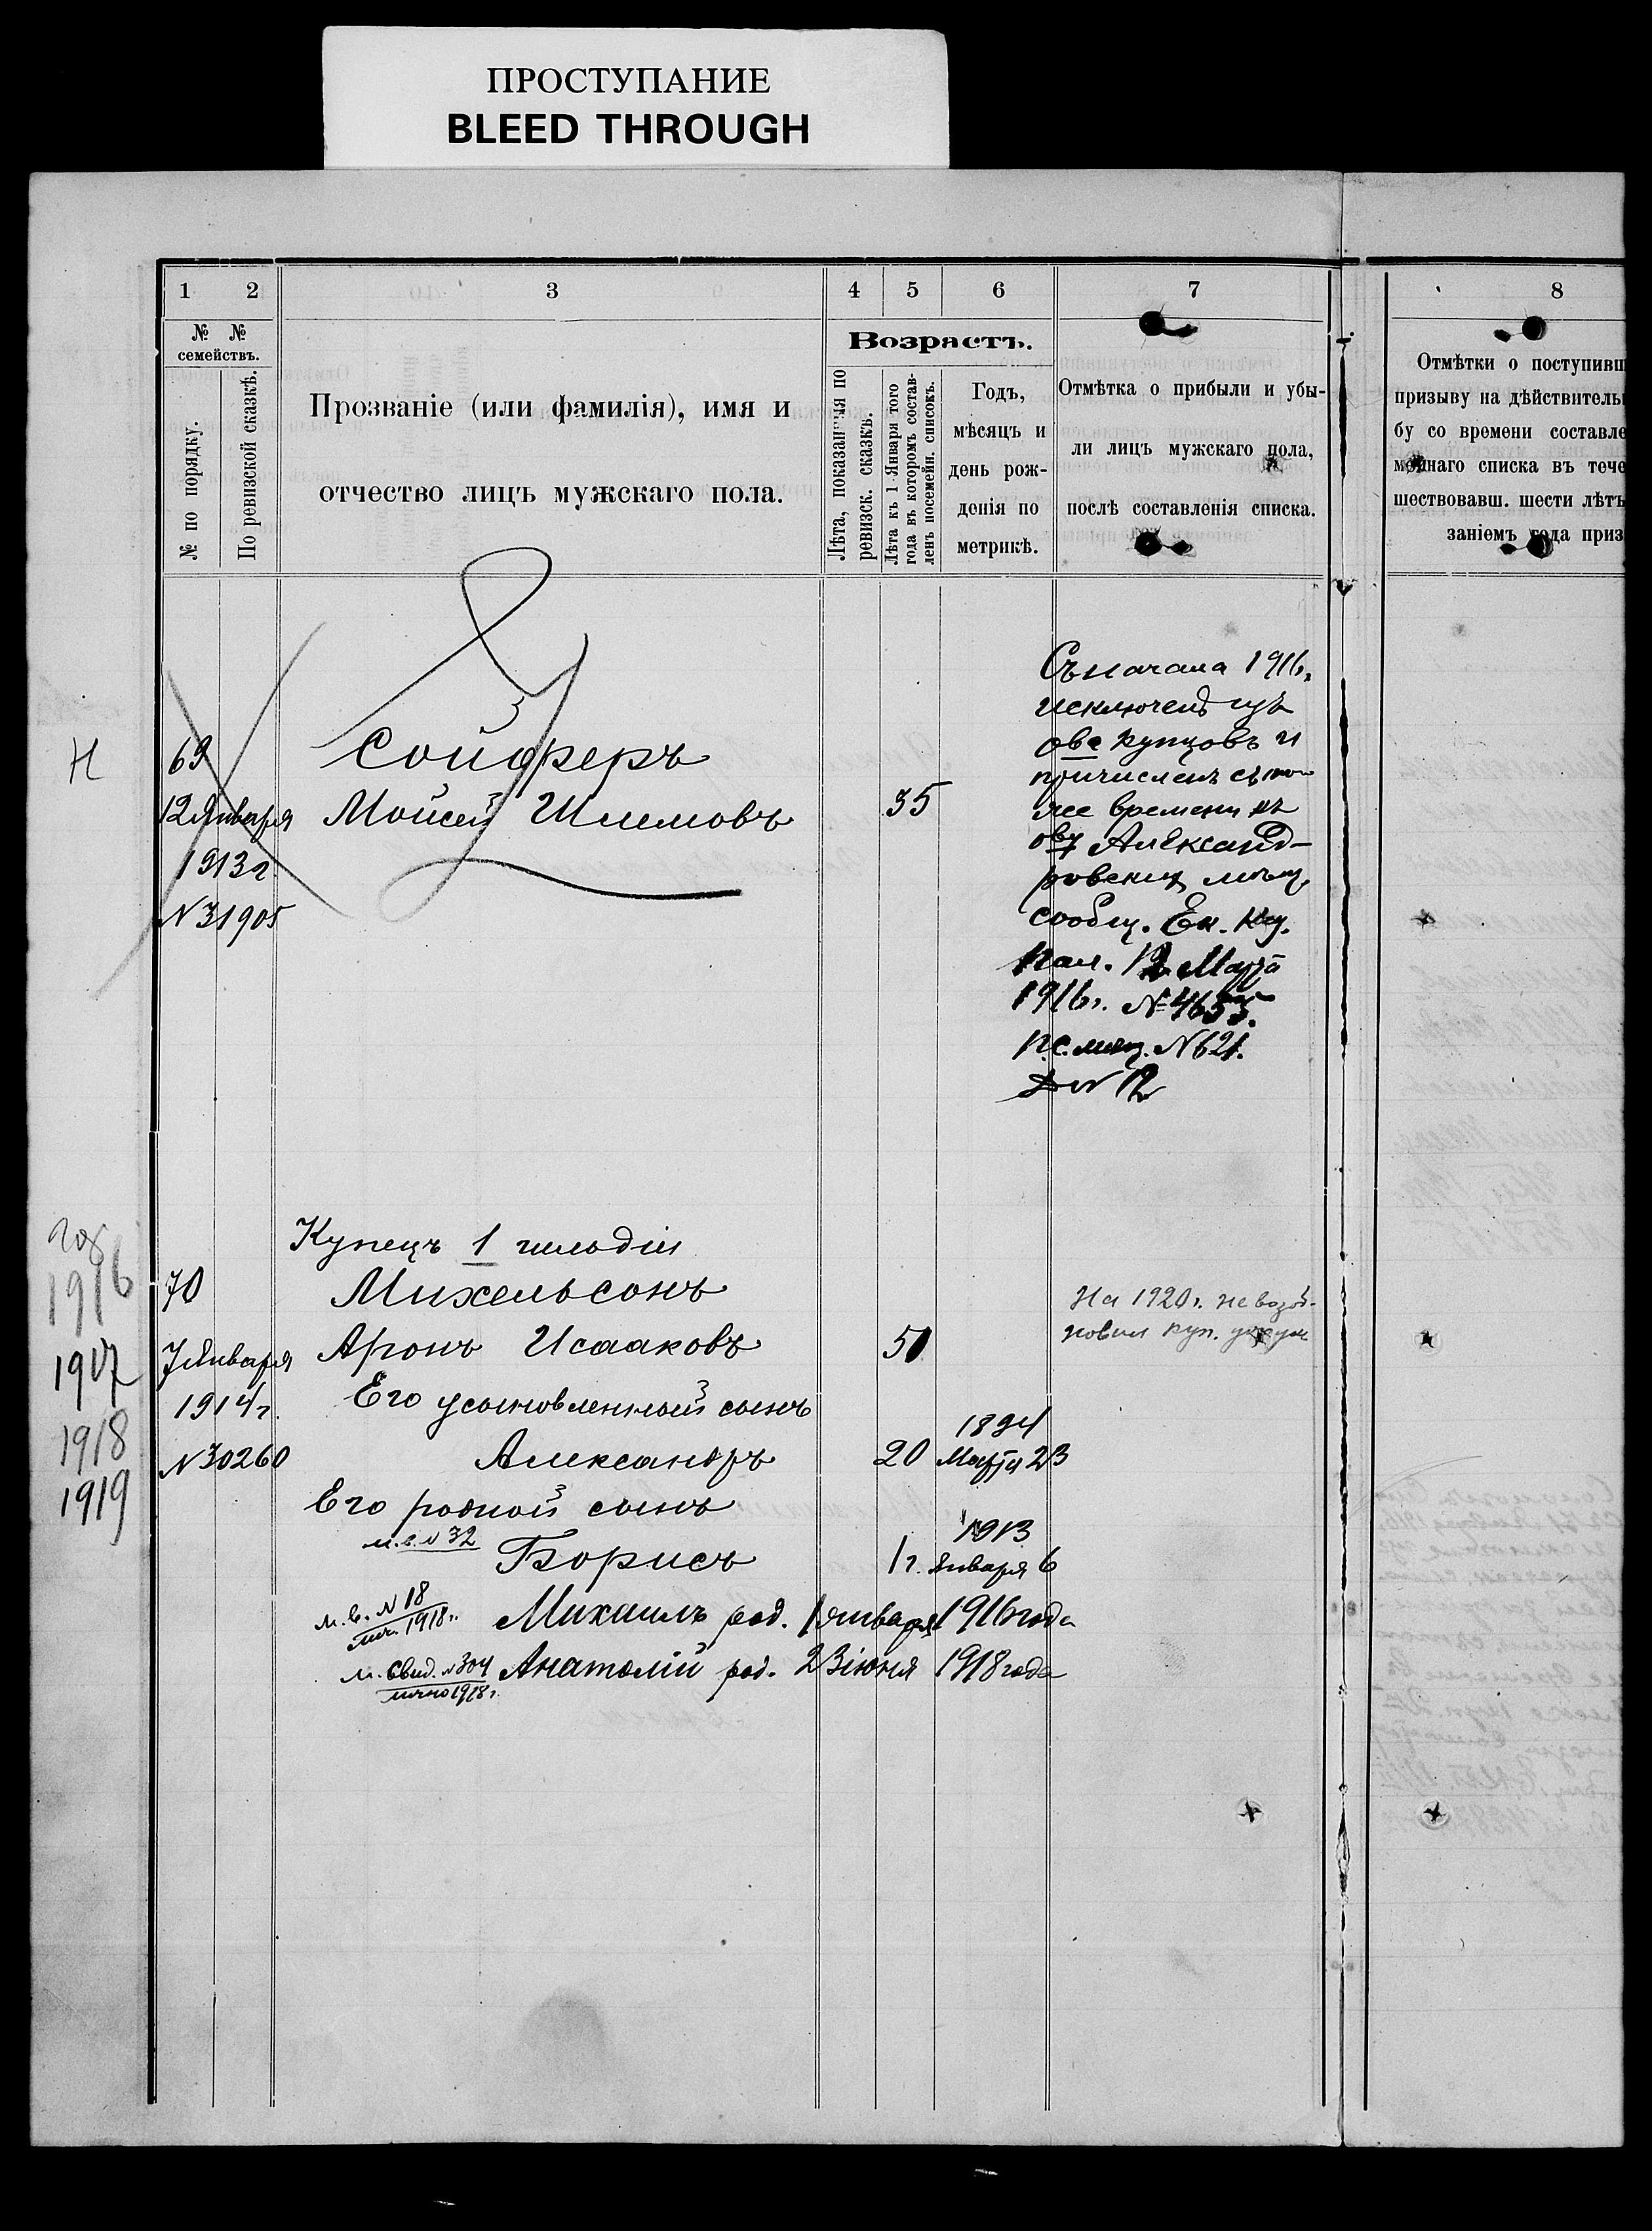 ПРОСТУПАНИЕ
BLEED THROUGH
1 2 3 4 5 6 7 8
№ № семействъ.
№ по порядку.
По ревизской сказкѣ.
Прозваніе (или фамилія), имя и
отчество лицъ мужскаго пола.
Возрастъ.
Лѣта, показанныя по
ревизск. сказкѣ.
Лѣта къ 1 Января того
года въ которомъ состав-
ленъ посемейн. списокъ.
Годъ,
мѣсяцъ и
день рож-
денія по
метрикѣ.
Отмѣтка о прибыли и убы-
ли лицъ мужскаго пола,
послѣ составленія списка.
Отмѣтки о поступивш
призыву на дѣйствительн
бу со времени составле
мейнаго списка въ тече
шествовавш. шести лѣтъ
заніемъ года приз
Н
69
12 Января
1913 г.
N 31905
Сойферъ
Мойсей Шлемовъ
35
Съ начала 1916 г.
исключенъ изъ
ова купцовъ и
причисленъ съ того
же времени къ
обу Александ-
ровских мѣщ.
сообщ. Ек. Каз.
Пал. 12 Марта
1916 г. № 4655.
п.с. мѣщ. N 621.
Д N 12
Купецъ 1 гильдіи
год
1916
1917
1918
1919
70
7 Января
1914 г.
N 30260
Михельсонъ
Аронъ Исааковъ
51
На 1920 г. не возоб-
новил куп.
Его усыновленный сынъ
Александръ
20
1894
Марта 23
Его родной сынъ
м.в. N 32
Борисъ
1 г.
1913
Января 6
м.в. N 18
1918 г.
Михаилъ род. 1 января 1916 года
м. свид. N 304
лично 1918 г.
Анатолій род. 23 іюня 1918 года